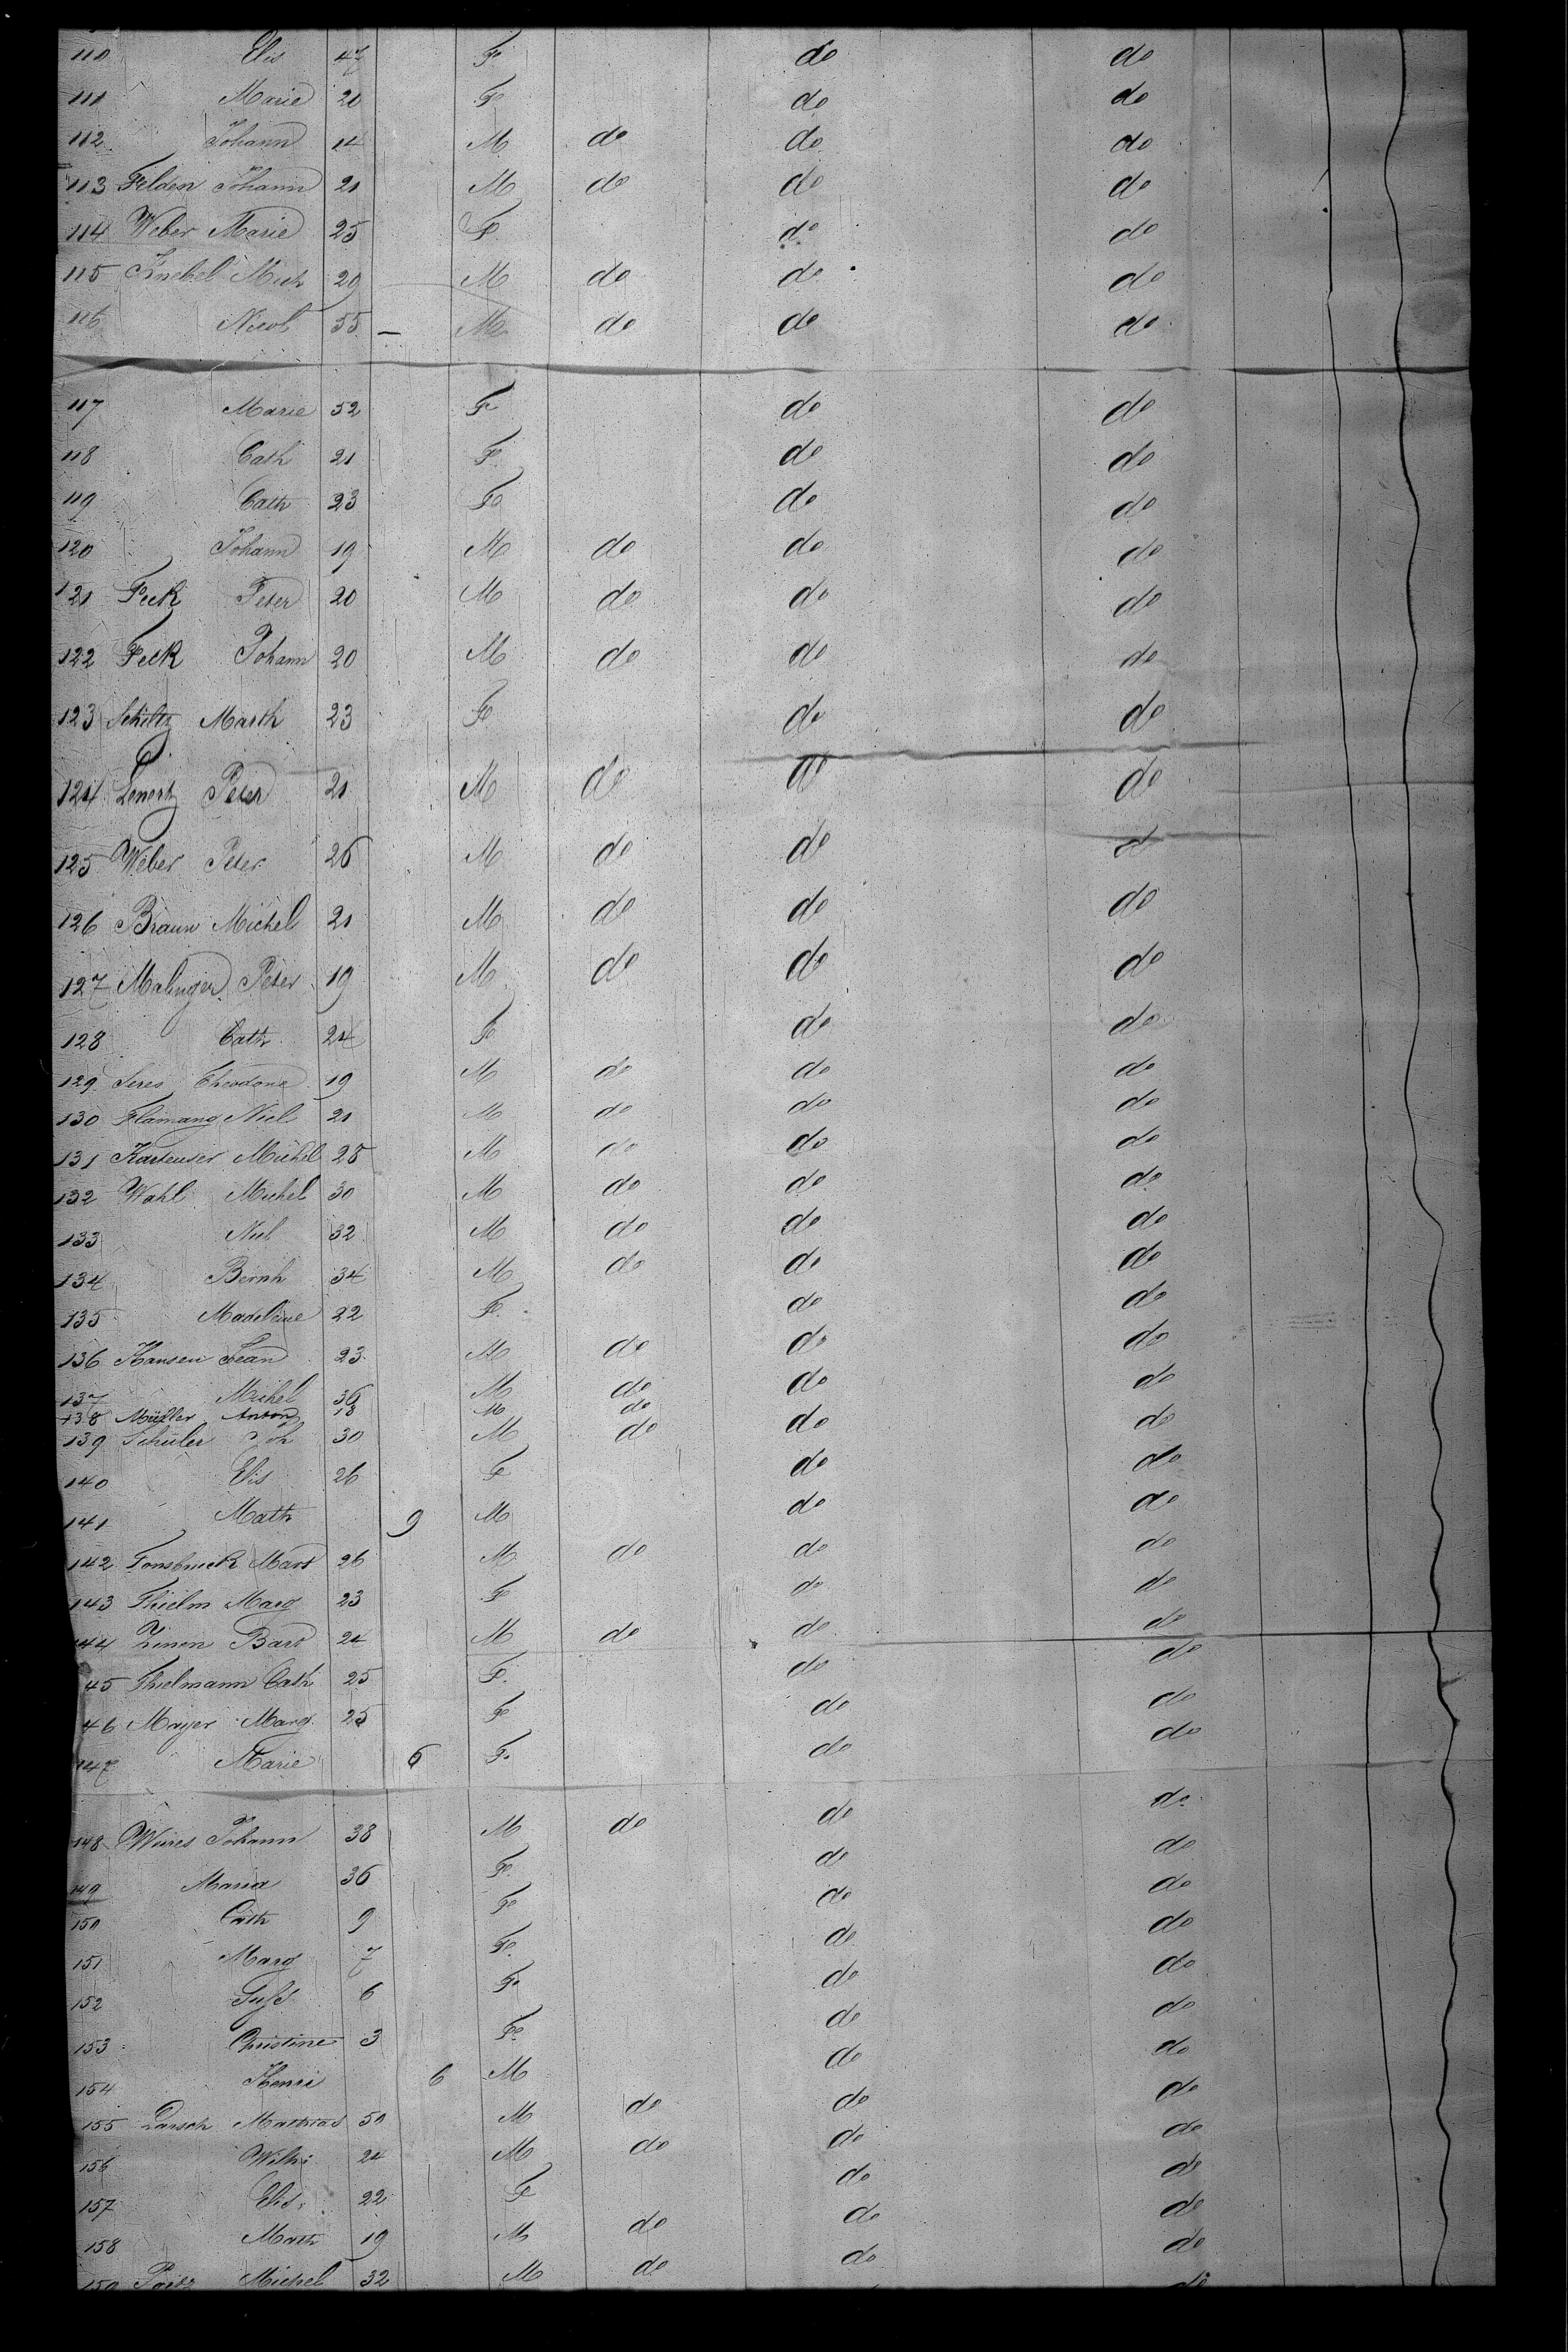 110 Elis 47 F do do
111 Marie 20 F do do
112 Johann 14 M do do do
113 Felden Johann 21 M do do do
114 Weber Marie 25 F do do
115 Knebel Mich 29 M do do do
116 Nicol 55 — M do do do
117 Marie 52 F do do
118 Cath 21 F do do
119 Cath 23 F do do
120 Johann 19 M do do do
121 Feck Peter 20 M do do do
122 Feck Johann 20 M do do do
123 Schiltz Marth 23 F do do
124 Lenertz Peter 21 M do do do
125 Weber Peter 26 M do do do
126 Braun Michel 21 M do do do
127 Malinger Peter 19 M do do do
128 Cath 24 F do do
129 Seres Theodone 19 M do do do
130 Flamang Nicl 21 M do do do
131 Karteuser Michel 25 M do do do
132 Wahl Michel 30 M do do do
133 Nicl 32 M do do do
134 Bernh 34 M do do do
135 Madeleine 22 F do do
136 Hansen Jean 23 M do do do
137 Michel 36 M do do do
138 Müller Anton 18 M do
139 Schuler Joh 30 M do do do
140 Elis 26 F do do
141 Math 9 M do do
142 Fonsbruck Mart 26 M do do do
143 Thielm Marg 23 F do do
144 Zinen Bart 24 M do do do
45 Thielmann Cath 25 F do do
46 Mayer Marg 25 F do do
147 Marie 6 F do do
148 Wires Johann 38 M do do do
149 Maria 36 F do do
150 Cath 9 F do do
151 Marg 7 F do do
152 6 F do do
153 Christine 3 F do do
154 Henri 6 M do do
155 Darsch Mathias 50 M do do do
156 Wilh 24 M do do do
157 Elis 22 F do do
158 Math 19 M do do do
159 Michel 32 M do do do